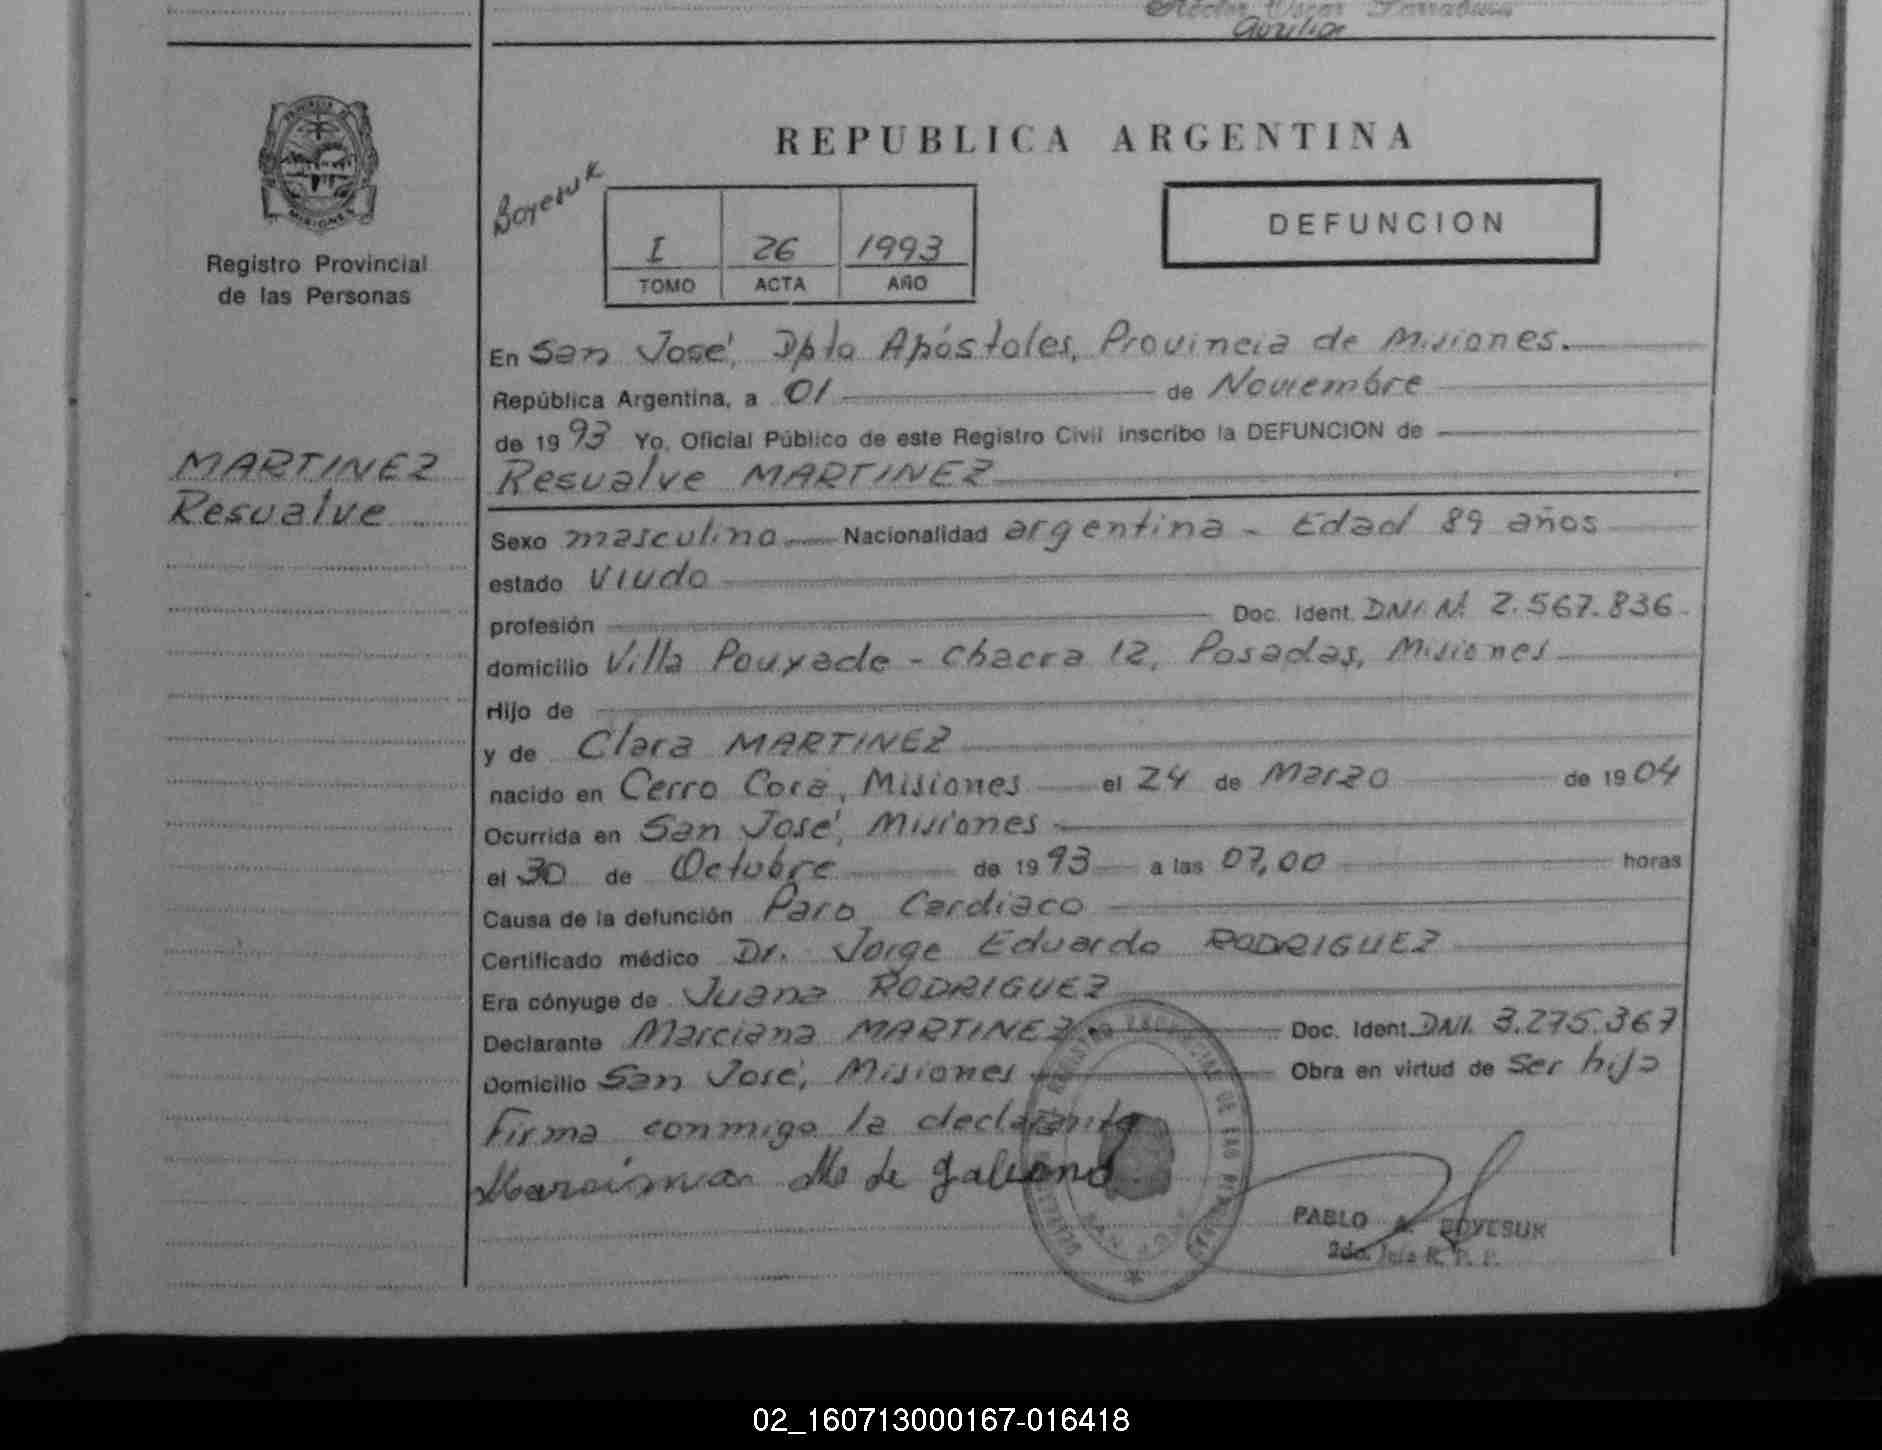 Auxiliar
REPUBLICA ARGENTINA
MISIONES
Registro Provincial
de las Personas
Boyesuk
I 26 1993
TOMO ACTA AÑO
DEFUNCION
En San José, Dpto Apóstoles, Provincia de Misiones.
República Argentina, a 01 de Noviembre
de 1993 Yo, Oficial Público de este Registro Civil inscribo la DEFUNCION de
MARTINEZ
Resualve
Resualve MARTINEZ
Sexo masculino Nacionalidad argentina - Edad 89 años
estado Viudo
profesión Doc. Ident. DNI. Nº 2.567.836
domicilio Villa Pouyade - chacra 12, Posadas, Misiones
Hijo de
y de Clara MARTINEZ
nacido en Cerro Corá, Misiones el 24 de Marzo de 1904
Ocurrida en San José, Misiones
el 30 de Octubre de 1993 a las 07,00 horas
Causa de la defunción Paro Cardiaco
Certificado médico Dr. Jorge Eduardo RODRIGUEZ
Era cónyuge de Juana RODRIGUEZ
Declarante Marciana MARTINEZ Doc. Ident. DNI. 3.275.367
Domicilio San José, Misiones Obra en virtud de ser hija
Firma conmigo la declarante
Marciana M de galeano
PABLO A. BOYESUK
2do. Jefe R. P. P.
02_160713000167-016418